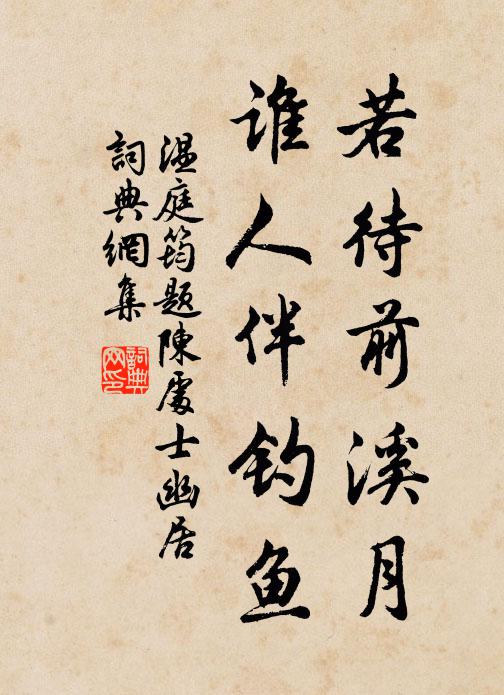 若待前溪月
谁人伴钓鱼
温庭筠题陳處士幽居
詞典網集
詞典网印